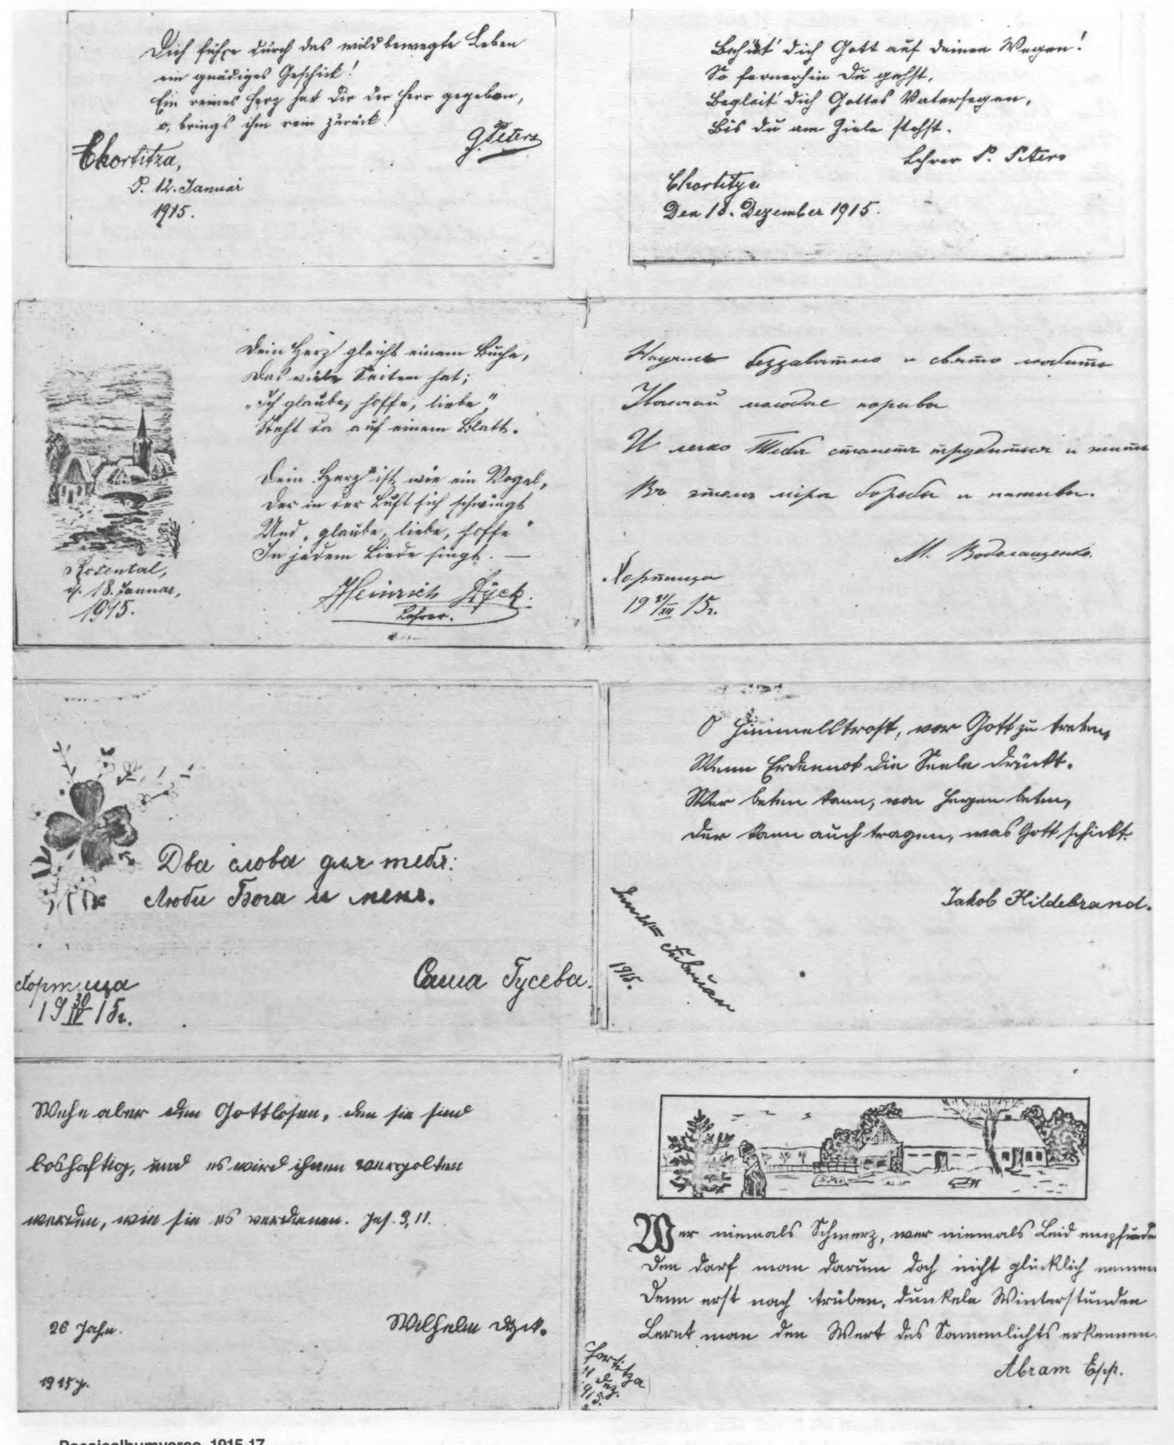 Dich führe durch das wildbewegte Leben
ein gnädiges Geschick!
Ein reines Herz hat Dir der Herr gegeben,
o, brings ihm rein zurück!
G. Peters
Chortitza,
d. 12. Januar
1915.
Behüt' dich Gott auf deinen Wegen!
So fernerhin du gehst,
Begleit' dich Gottes Vatersegen,
Bis du am Ziele stehst.
Lehrer P. Peters
Chortitza
Den 18. Dezember 1915.
Dein Herz gleicht einem Buche,
Das viele Seiten hat;
„Ich glaube, hoffe, liebe"
Steht da auf einem Blatt.
Dein Herz ist wie ein Vogel,
Der in der Luft sich schwingt
Und „glaube, liebe, hoffe"
In jedem Liede singt. —
Rosental,
d. 18. Januar,
1915.
Heinrich Dyck.
Lehrer.
беззаветно и свято любить
И легко Тебе станет трудиться и жить
Въ этомъ міре борьбы и
М. Водолащенко.
Хортица
19 21/XII 15г.
Два слова для тебя:
Люби Бога и меня.
Саша Гусева.
Хортица
19 30/IV 15г.
O Himmelstrost, vor Gott zu treten,
Wenn Erdennot die Seele drückt.
Wer beten kann, von Herzen beten,
Der kann auch tragen, was Gott schickt.
Jakob Hildebrand.
Februar
1915.
Wehe aber den Gottlosen, den sie sind
boshaftig, und es wird ihnen vergolten
werden, wie sie es verdienen. Jes. 3, 11.
Wilhelm Dyck.
26
1915 j.
Wer niemals Schmerz, wer niemals Leid empfunden
Den darf man darum doch nicht glücklich nennen
Denn erst nach trüben, dunkeln Winterstunden
Lernt man den Wert des Sonnenlichts erkennen.
Abram Epp.
Hortitza
11 Dez.
915.
Poesiealbumverse, 1915-17